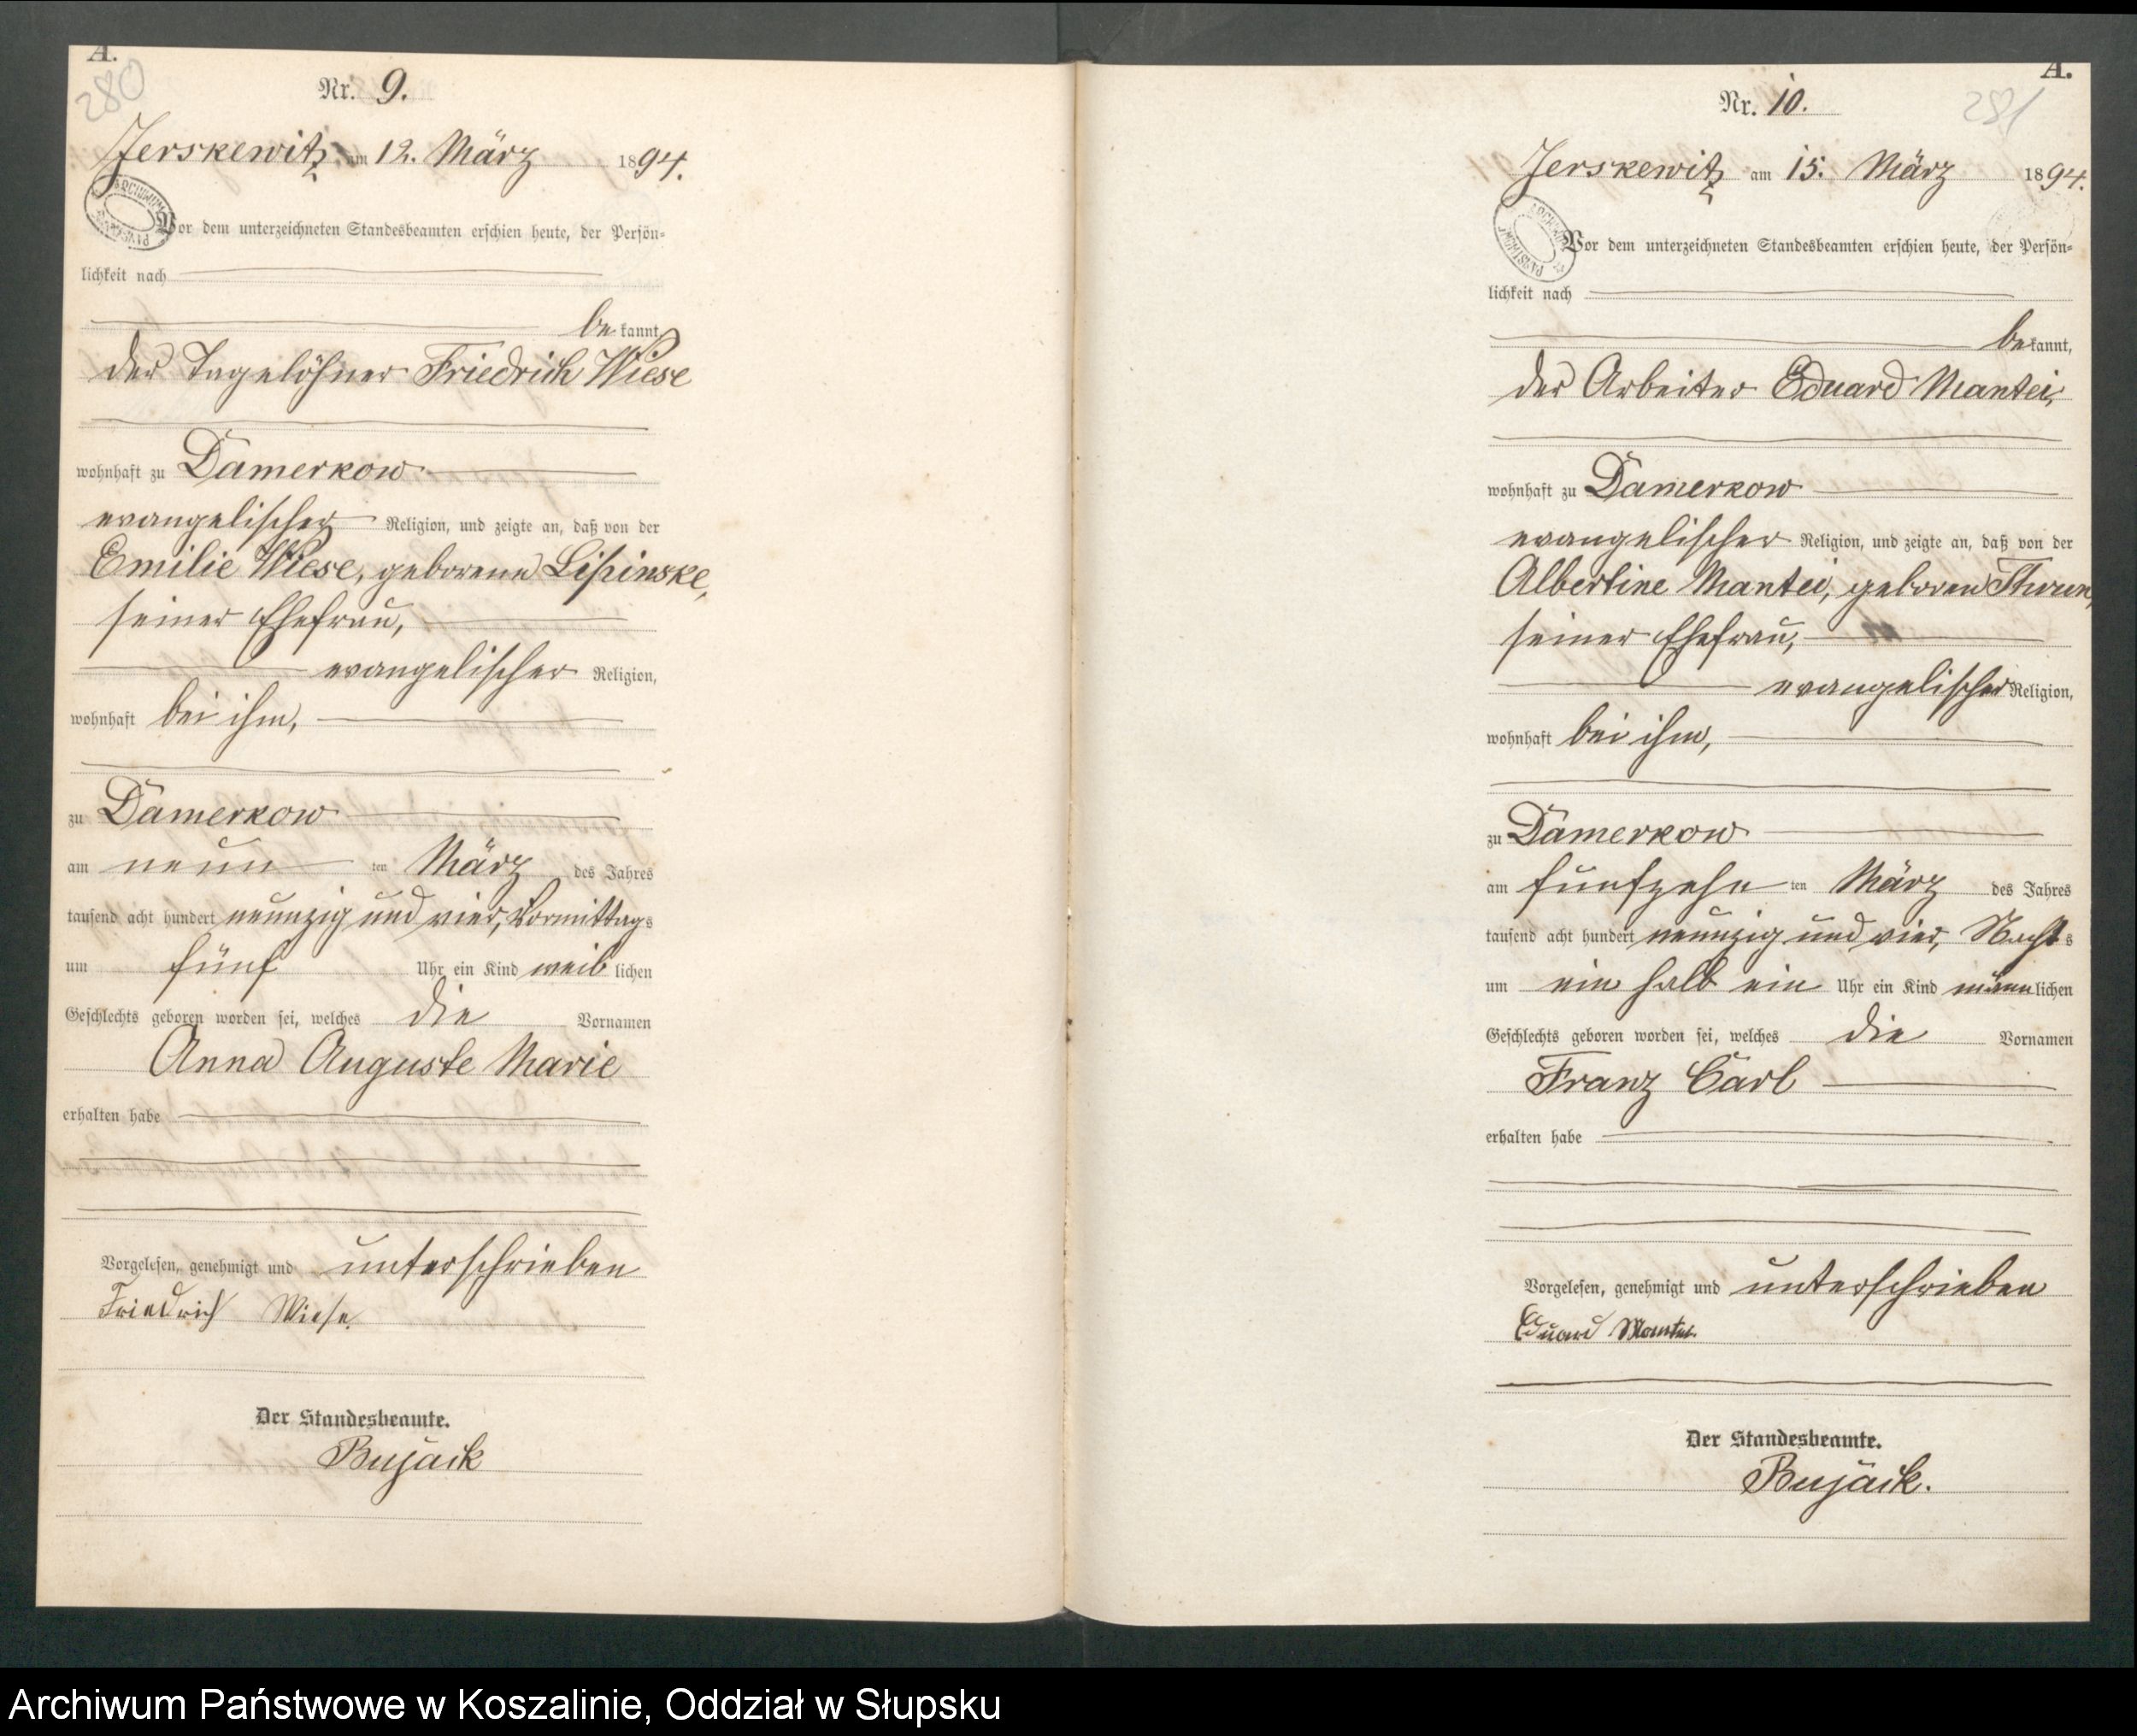 A.
280
Nr. 9.
Jerskewitz am 12. März 1894.
Vor dem unterzeichneten Standesbeamten erschien heute, der Persön=
lichkeit nach
bekannt,
der Tagelöhner Friedrich Wiese
wohnhaft zu Damerkow
evangelischer Religion, und zeigte an, daß von der
Emilie Wiese, geborene Lipinske,
seiner Ehefrau,
evangelischer Religion,
wohnhaft bei ihm,
zu Damerkow
am neun ten März des Jahres
tausend acht hundert neunzig und vier, Vormittags
um fünf Uhr ein Kind weiblichen
Geschlechts geboren worden sei, welches die Vornamen
Anna Auguste Marie
erhalten habe
Vorgelesen, genehmigt und unterschrieben
Friedrich Wiese
Der Standesbeamte.
Bujack
A.
281
Nr. 10.
Jerskewitz am 15. März 1894.
ARCHIWUM PAŃSTWOWE
Vor dem unterzeichneten Standesbeamten erschien heute, der Persön=
lichkeit nach
bekannt,
der Arbeiter Eduard Mantei,
wohnhaft zu Damerkow
evangelischer Religion, und zeigte an, daß von der
Albertine Mantei, geboren Thrun,
seiner Ehefrau,
evangelischer Religion,
wohnhaft bei ihm,
zu Damerkow
am fünfzehn ten März des Jahres
tausend acht hundert neunzig und vier, Nachts
um ein halb ein Uhr ein Kind männlichen
Geschlechts geboren worden sei, welches die Vornamen
Franz Carl
erhalten habe
Vorgelesen, genehmigt und unterschrieben
Eduard Mantei
Der Standesbeamte.
Bujack.
Archiwum Państwowe w Koszalinie, Oddział w Słupsku